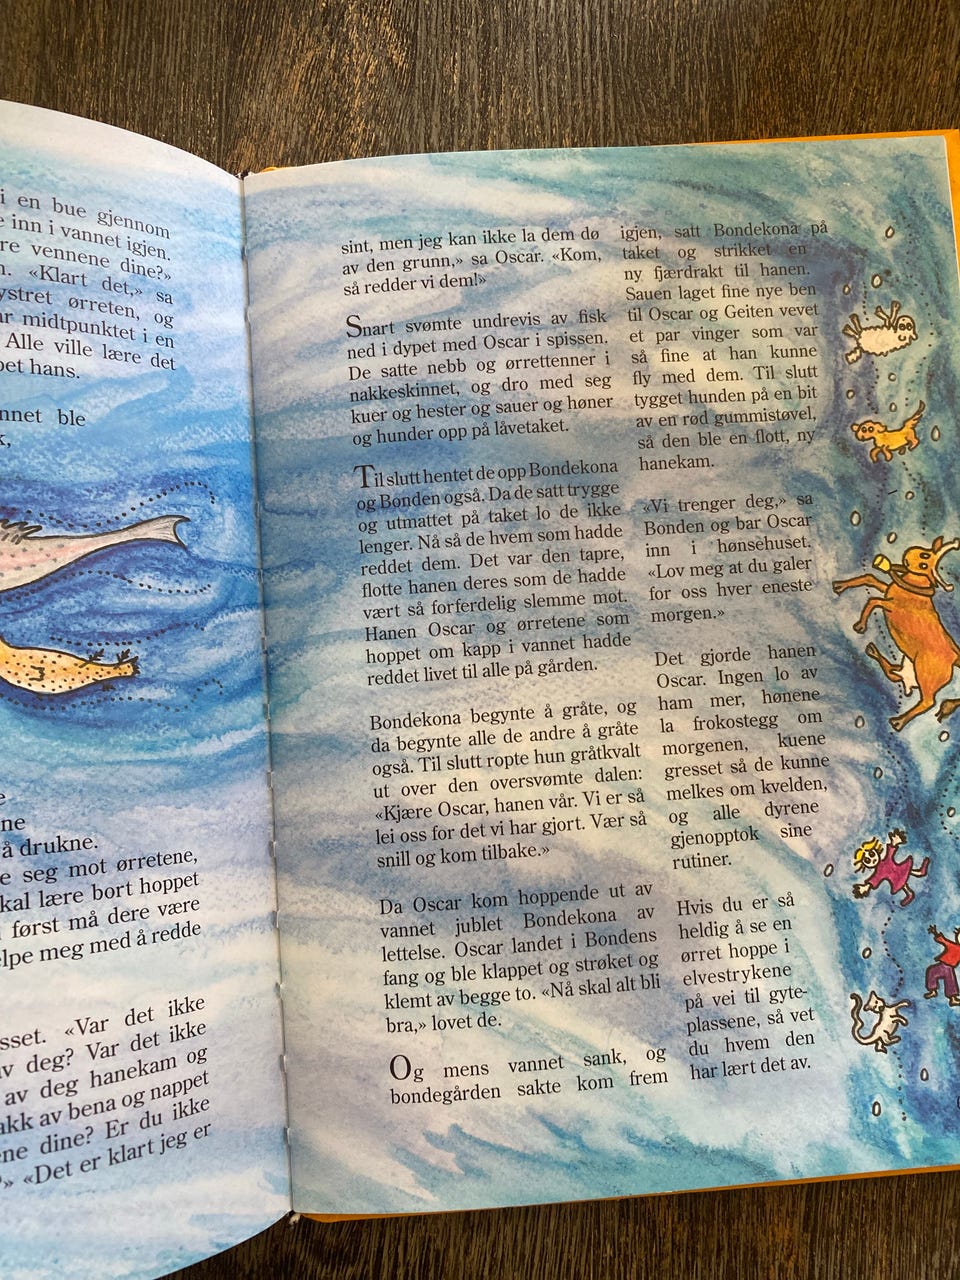 i en bue gjennom
inn i vannet igjen.
re vennene dine?»
«Klart det,» sa
ystret ørreten, og
ar midtpunktet i en
Alle ville lære det
pet hans.
nnet ble
k,
e
ne
å drukne.
e seg mot ørretene,
kal lære bort hoppet
først må dere være
elpe meg med å redde
sset. «Var det ikke
v deg? Var det ikke
av deg hanekam og
akk av bena og nappet
ne dine? Er du ikke
?» «Det er klart jeg er
sint, men jeg kan ikke la dem dø
av den grunn,» sa Oscar. «Kom,
så redder vi dem!»
Snart svømte undrevis av fisk
ned i dypet med Oscar i spissen.
De satte nebb og ørrettenner i
nakkeskinnet, og dro med seg
kuer og hester og sauer og høner
og hunder opp på låvetaket.
Til slutt hentet de opp Bondekona
og Bonden også. Da de satt trygge
og utmattet på taket lo de ikke
lenger. Nå så de hvem som hadde
reddet dem. Det var den tapre,
flotte hanen deres som de hadde
vært så forferdelig slemme mot.
Hanen Oscar og ørretene som
hoppet om kapp i vannet hadde
reddet livet til alle på gården.
Bondekona begynte å gråte, og
da begynte alle de andre å gråte
også. Til slutt ropte hun gråtkvalt
ut over den oversvømte dalen:
«Kjære Oscar, hanen vår. Vi er så
lei oss for det vi har gjort. Vær så
snill og kom tilbake.»
Da Oscar kom hoppende ut av
vannet jublet Bondekona av
lettelse. Oscar landet i Bondens
fang og ble klappet og strøket og
klemt av begge to. «Nå skal alt bli
bra,» lovet de.
Og mens vannet sank, og
bondegården sakte kom frem
igjen, satt Bondekona på
taket og strikket en
ny fjærdrakt til hanen.
Sauen laget fine nye ben
til Oscar og Geiten vevet
et par vinger som var
så fine at han kunne
fly med dem. Til slutt
tygget hunden på en bit
av en rød gummistøvel,
så den ble en flott, ny
hanekam.
«Vi trenger deg,» sa
Bonden og bar Oscar
inn i hønsehuset.
«Lov meg at du galer
for oss hver eneste
morgen.»
Det gjorde hanen
Oscar. Ingen lo av
ham mer, hønene
la frokostegg om
morgenen, kuene
gresset så de kunne
melkes om kvelden,
og alle dyrene
gjenopptok sine
rutiner.
Hvis du er så
heldig å se en
ørret hoppe i
elvestrykene
på vei til gyte-
plassene, så vet
du hvem den
har lært det av.